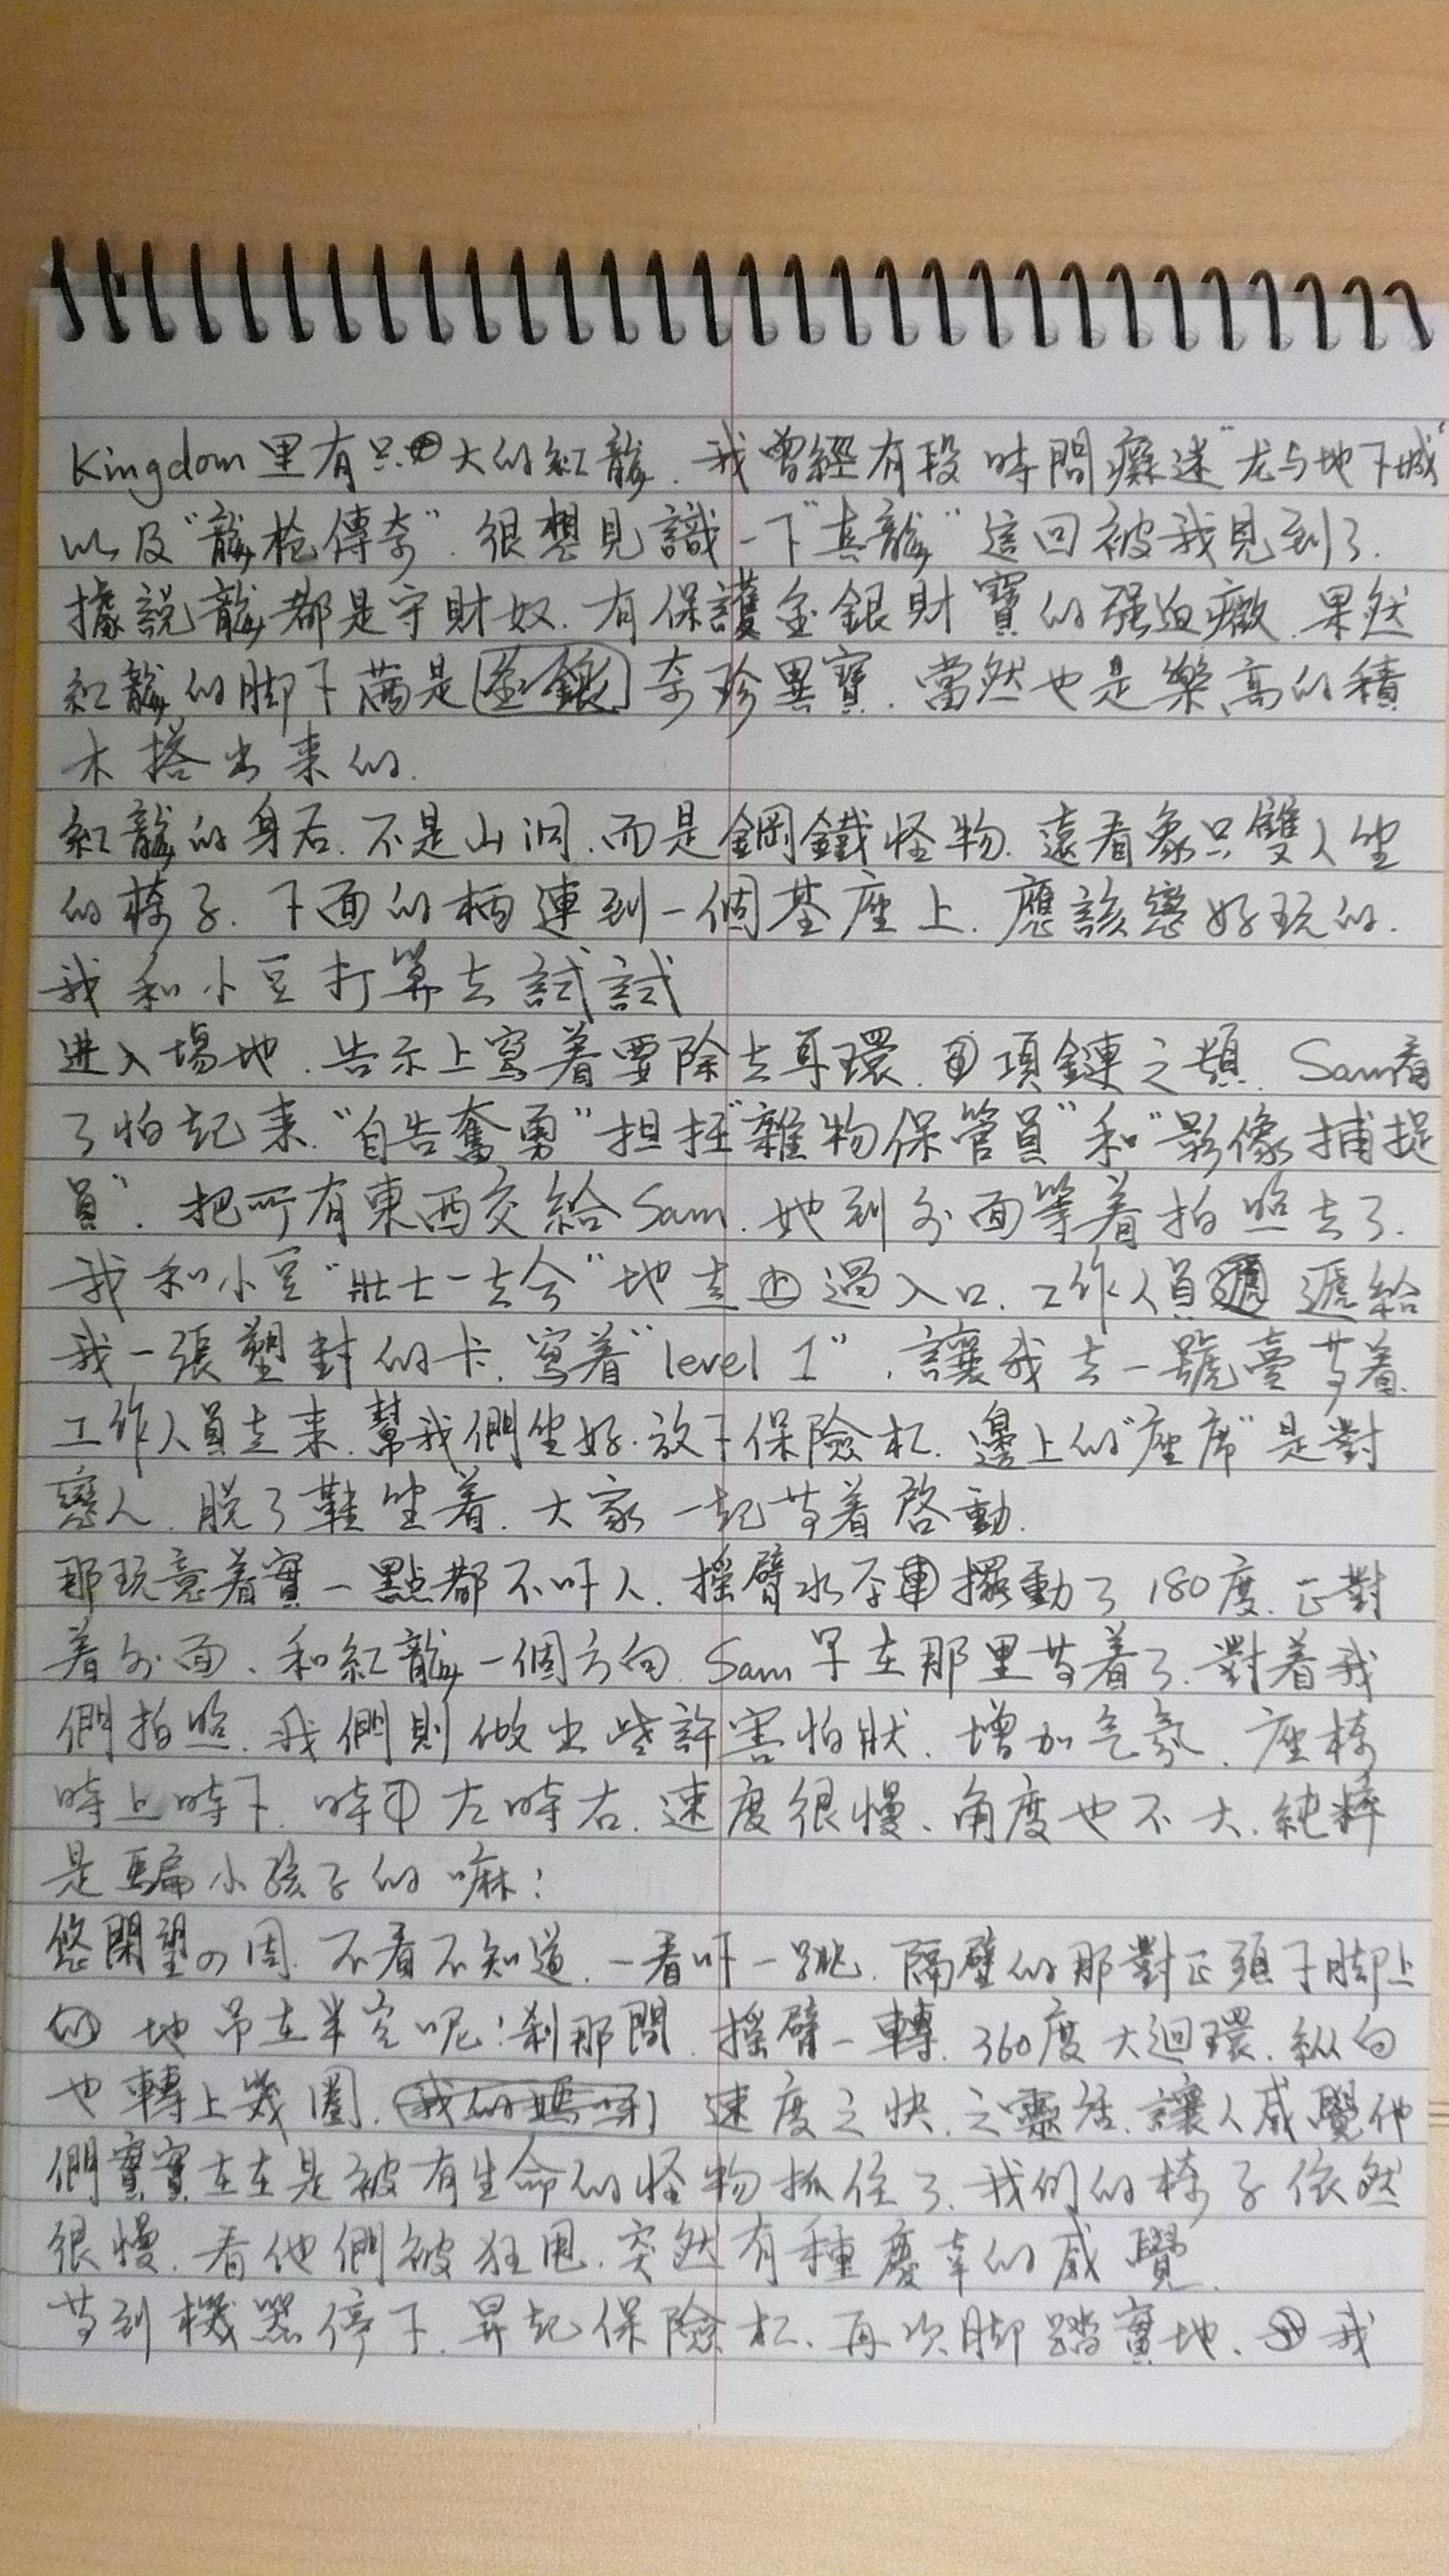 Kingdom 里有只大的紅龍．我曾經有段時間癡迷“龙与地下城”
以及“龍枪傳奇”．很想見識一下“真龍”這回被我見到了．
據説龍都是守財奴．有保護金銀財寶的强迫癥．果然
紅龍的脚下滿是奇珍異寶．當然也是樂高的積
木搭出来的．
紅龍的身后．不是山洞、而是鋼鐵怪物．遠看象只雙人坐
的椅子．下面的柄連到一個基座上．應該戀好玩的．
我和小豆打算去試試
进入場地．告示上寫着要除去耳環．項鏈之類．Sam看
了怕起来．“自告奮勇”担任“雜物保管員”和“影像捕捉
員”．把所有東西交給Sam．她到外面等着拍照去了．
我和小豆“壯士一去兮”地走過入口．工作人員遞給
我一張塑封的卡．寫着“level 1”，讓我去一號臺等着
工作人員走来．幫我們坐好．放下保險杠．邊上的“座席”是對
戀人．脱了鞋坐着．大家一起等着啓動．
那玩意着實一點都不吓人．摇臂水平擺動了180度．正對
着外面、和紅龍一個方向．Sam早在那里等着了．對着我
們拍照．我們則做出些許害怕狀、增加气氛．座椅
時上時下．時左時右．速度很慢、角度也不大．純粹
是騙小孩子的嘛！
悠閑望四周．不看不知道．一看吓一跳．隔壁的那對正頭下脚上
地吊在半空呢！刹那間．摇臂一轉．360度大迴環．纵向
也轉上幾圈．速度之快．之靈活．讓人感覺他
們實實在在是被有生命的怪物抓住了．我们的椅子依然
很慢．看他們被狂甩．突然有種慶幸的感覺．
等到機器停下．昇起保險杠．再次脚踏實地、我